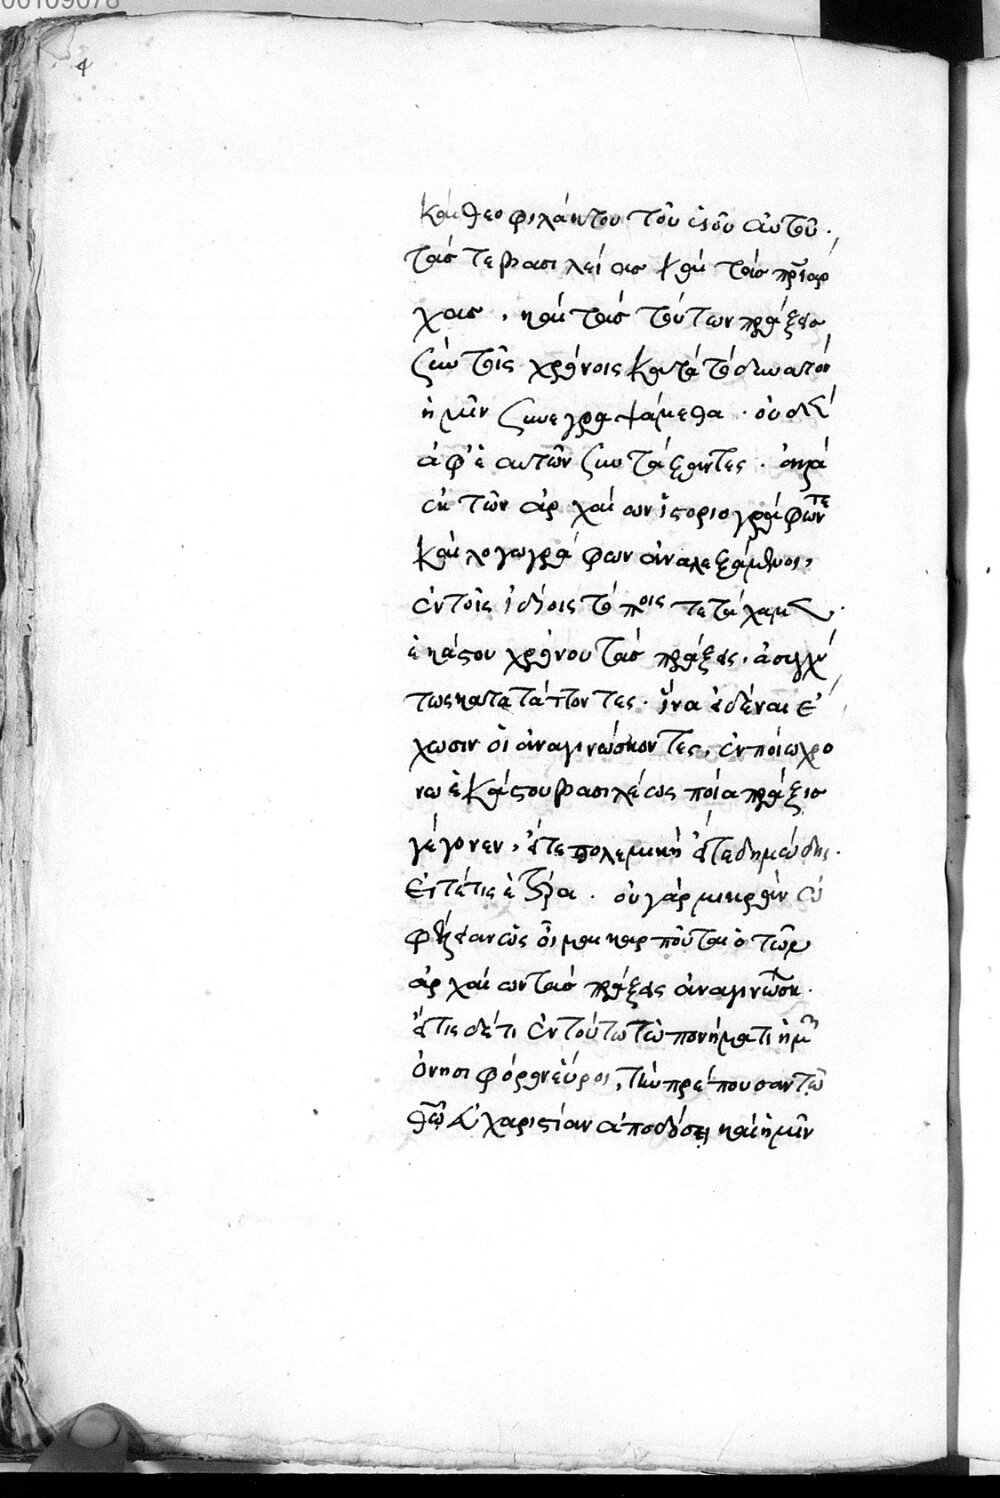 00109078
4
καὶ θεοφιλάκτου τοῦ υἱοῦ αὐτοῦ.
τάς τε βασιλείας καὶ τὰς πριαρ
χίας, καὶ τὰς τούτων πράξεις
σὺν τοῖς χρόνοις κατὰ τὸ δυνατὸν
ἡμῖν συνεγραψάμεθα. οὐδὲν
ἀφ' ἑαυτῶν συντάξαντες. ἀλλὰ
ἐκ τῶν ἀρχαίων ἱστοριογράφων τε
καὶ λογογράφων ἀναλεξάμενοι,
ἐν τοῖς ἰδίοις τόποις τετάχαμεν.
ἑκάστου χρόνου τὰς πράξεις, ἀσυγχύ
τως κατατάττοντες. ἵνα εἰδέναι ἔ
χωσιν οἱ ἀναγινώσκοντες, ἐν ποίω χρό
νω ἑκάστου βασιλέως ποία πράξις
γέγονεν, εἴτε πολεμικὴ εἴτε δημώδης.
εἴτέ τις ἑτέρα. οὐ γὰρ μικρὰν
ὠς οἶμαι καρποῦται ὁ τῶν
ἀρχαίων τὰς πράξεις ἀναγινώσκων.
εἴ τις δέ τι ἐν τούτω τῶ πονήματι ἡμῶν
ὀνησιφόρον εὕροι, τὴν πρέπουσαν τῶ
θεῶ εὐχαριστίαν ἀποδώσει καὶ ἡμῖν